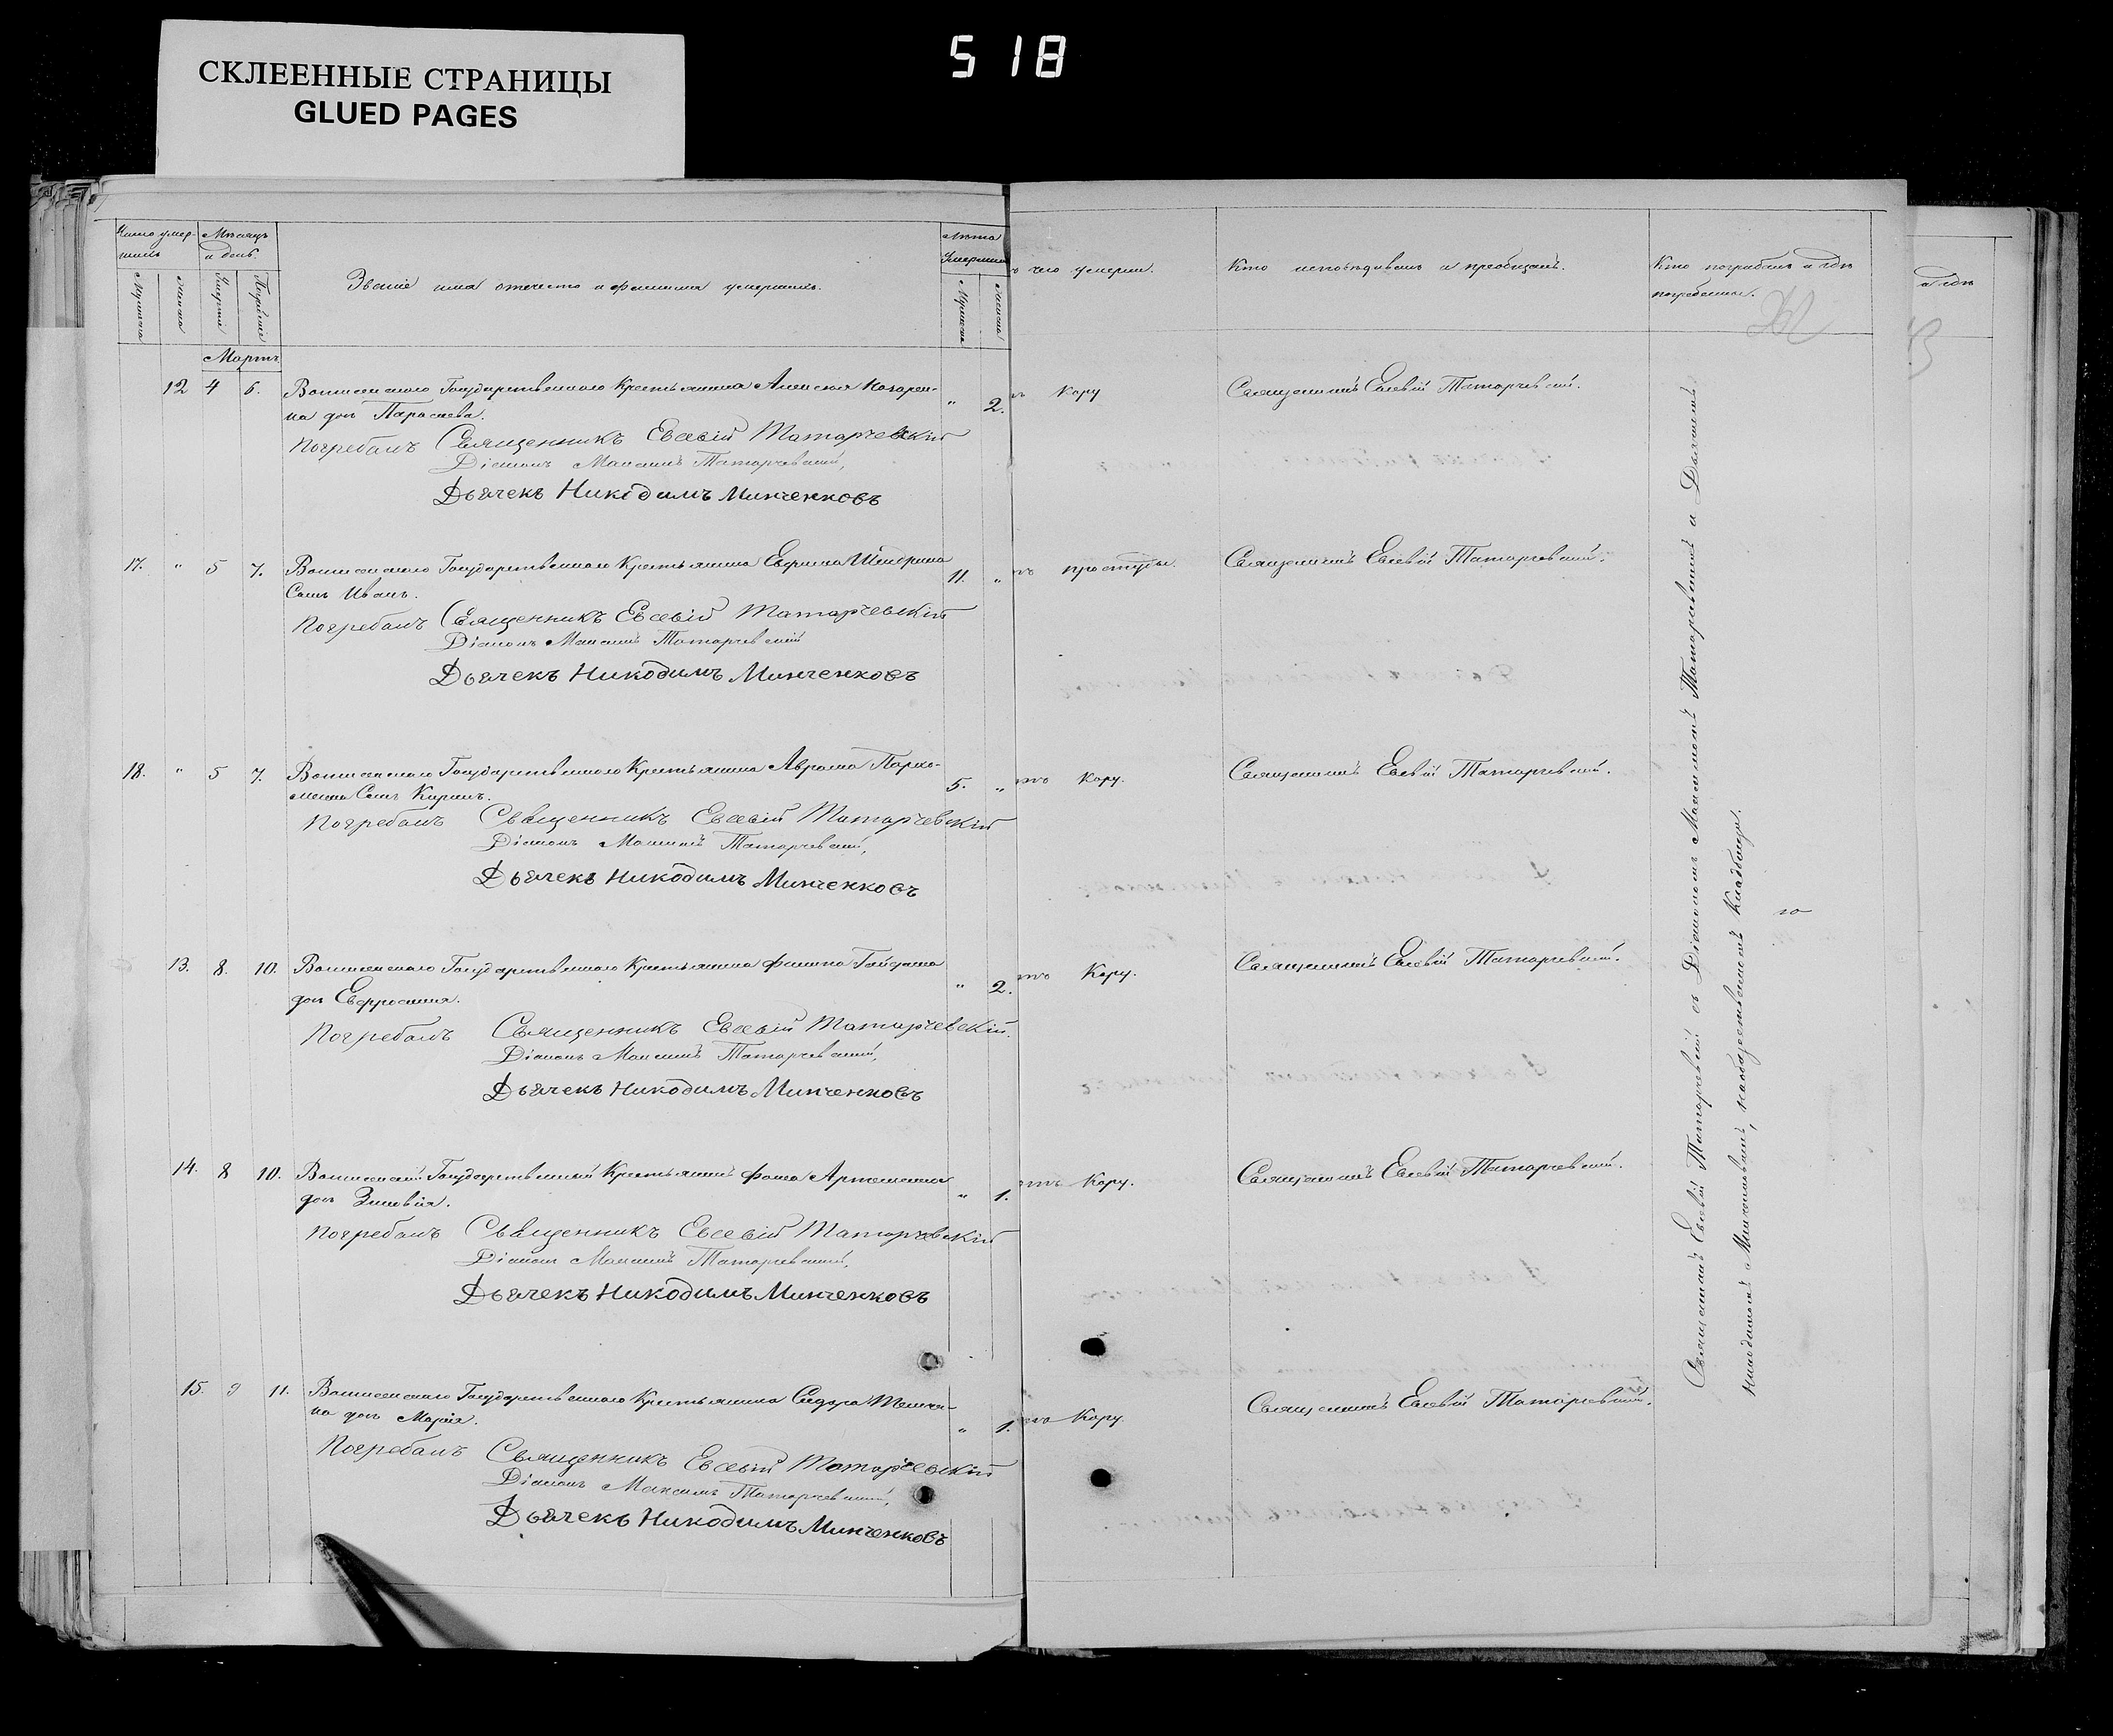 СКЛЕЕННЫЕ СТРАНИЦЫ
GLUED PAGES
518
Число умер-
шихъ
Мѣсяцъ
и день.
Званіе имя отчество и фамилия умершихъ.
Лѣта
Умершихъ
чего умерли.
Кто исповѣдывалъ и пріобщалъ.
Кто погребалъ и гдѣ
погребены.
и гдѣ
Мартъ
12 4 6. Государственного Крестьянина Алексея Назарен-
ка дочь Параскева. " 2. Кору Священникъ Евсевій Татарчевскій.
Погребалъ Священникъ Евсевій Татарчевскій
Діаконъ Максимъ Татарчевскій,
Дьячекъ Никодимъ Минченковъ
17. " 5 7. Государственного Крестьянина Ефима
Сынъ Иванъ. 11. " простуды. Священникъ Евсевій Татарчевскій.
Погребалъ Священникъ Евсевій Татарчевскій
Діаконъ Максимъ Татарчевскій
Дьячекъ Никодимъ Минченковъ
18. " 5 7. Государственного Крестьянина Аврама Пархо-
менка Сынъ 5. " Кору. Священникъ Евсевій Татарчевскій.
Погребалъ Священникъ Евсевій Татарчевскій
Діаконъ Максимъ Татарчевскій,
Дьячекъ Никодимъ Минченковъ
13. 8. 10. Государственного Крестьянина Гайдама
дочь Евфросинія. " 2. Кору. Священникъ Евсевій Татарчевскій.
Погребалъ Священникъ Евсевій Татарчевскій.
Діаконъ Максимъ Татарчевскій,
Дьячекъ Никодимъ Минченковъ
14. 8 10. Государственный Крестьянинъ Фома Артеменка
дочь Зиновія. " 1. Кору. Священникъ Евсевій Татарчевскій.
Погребалъ Священникъ Евсевій Татарчевскій
Діаконъ Максимъ Татарчевскій,
Дьячекъ Никодимъ Минченковъ
15. 9 11. Государственного Крестьянина Сидора
ка дочь Марія. " 1. Кору. Священникъ Евсевій Татарчевскій.
Погребалъ Священникъ Евсевій Татарчевскій
Діаконъ Максимъ Татарчевскій,
Дьячекъ Никодимъ Минченковъ
Священникъ Евсевій Татарчевскій съ Діакономъ Максимомъ Татарчевскимъ и Дьячкомъ
Никодимомъ Минченковымъ, на общественномъ кладбищѣ.